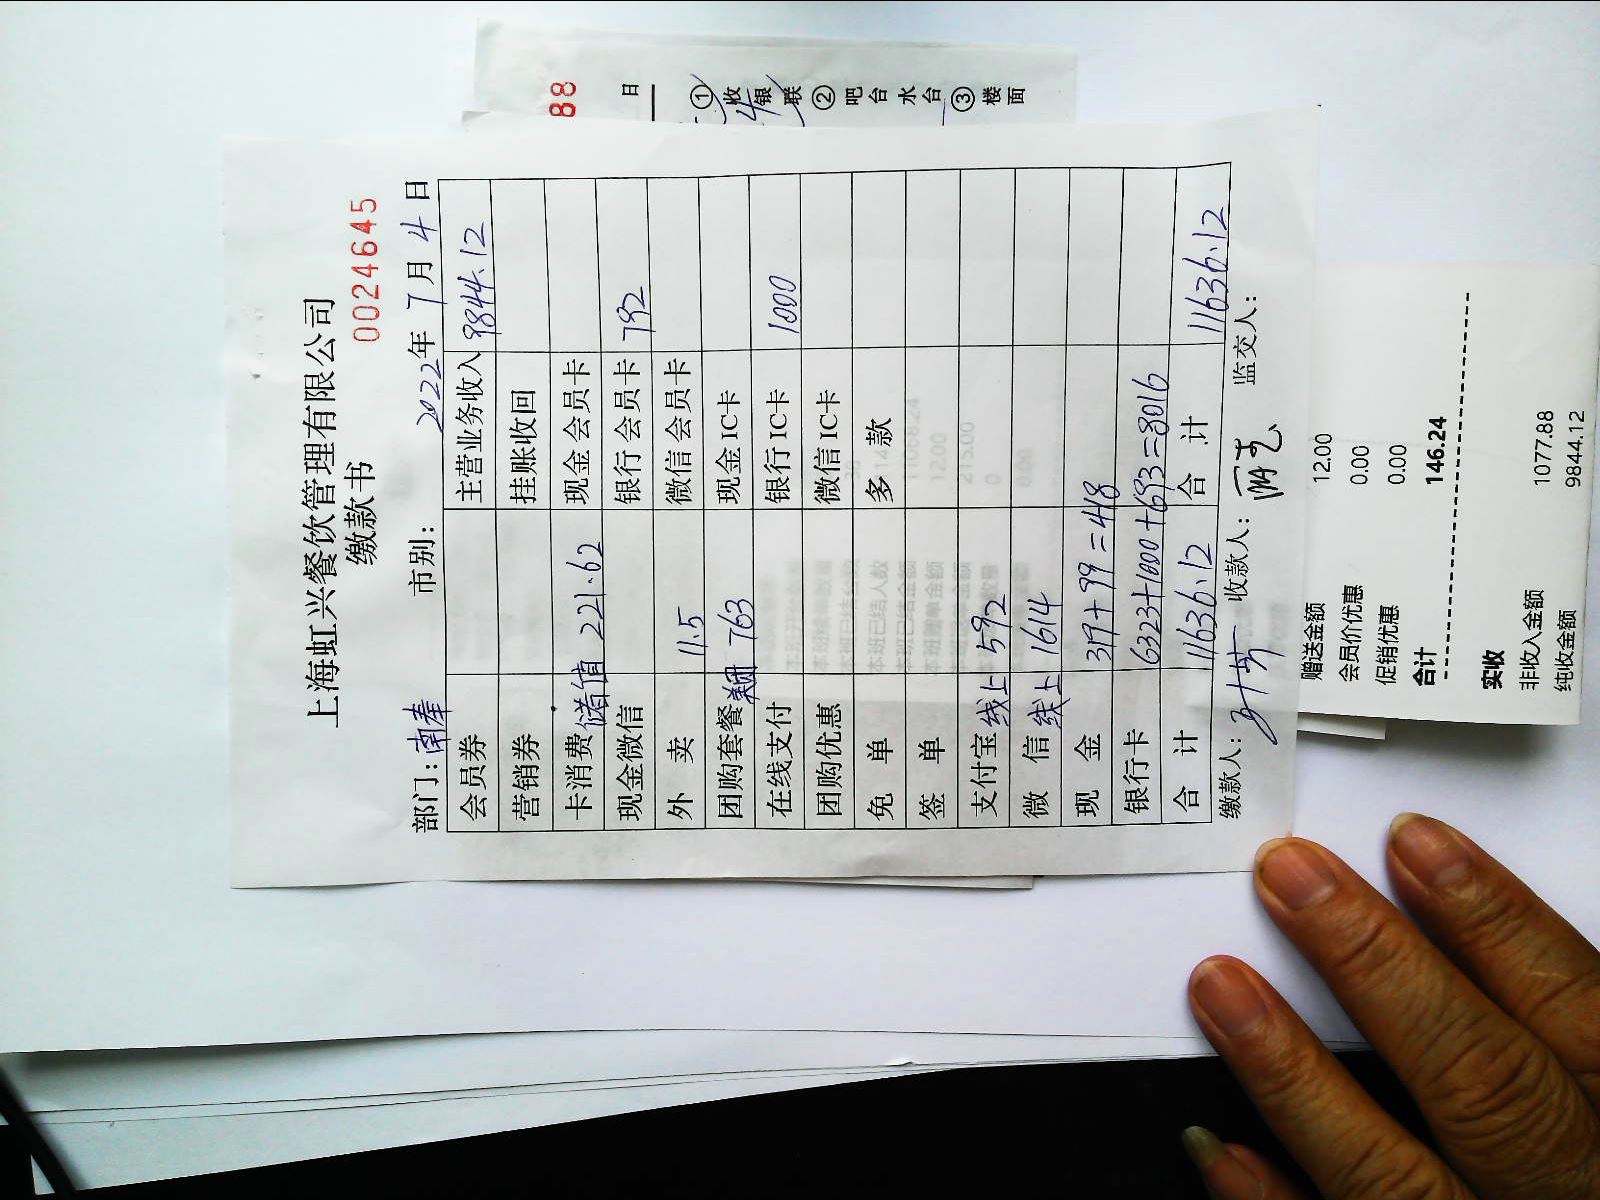 上海虹兴餐饮管理有限公司
缴款书
0024645
部门：南奉 市别： 2022年 7月 4日
会员券 主营业务收入 9844.12
营销券 挂账收回
卡消费 储值 221.62 现金会员卡
现金微信 银行会员卡 792
外 卖 11.5 微信会员卡
团购套餐 763 现金IC卡
在线支付 银行IC卡 1000
团购优惠 微信IC卡
免 单 多 款
签 单
支付宝 线上 592
微 信 线上 1614
现 金 319+99=418
银行卡 6323+1000+693=8016
合 计 11636.12 合 计 11636.12
缴款人： 收款人： 监交人：
88
日
①收银联 ②吧台水台 ③楼面
赠送金额 12.00
会员价优惠 0.00
促销优惠 0.00
合计 146.24
实收
非收入金额 1077.88
纯收金额 9844.12